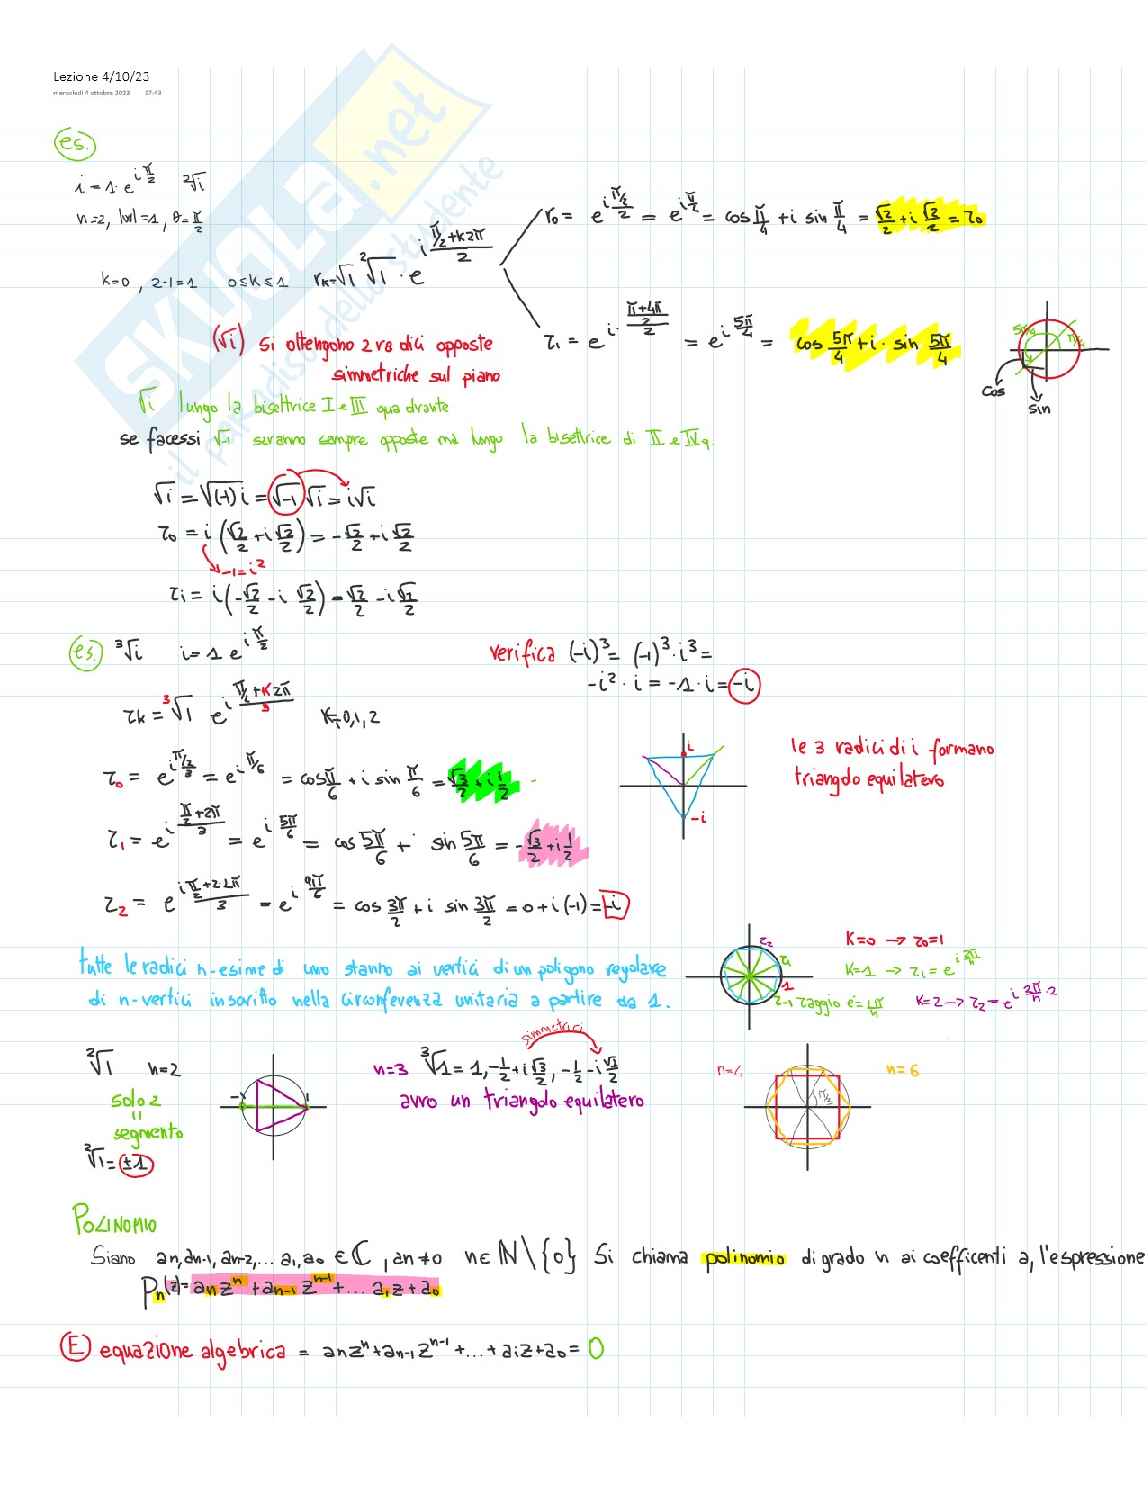 Lezione 4/10/23
mercoledì 4 ottobre 2023 17:43
es.
i = 1· e^{i π/2} ²√i
n=2, |w|=1, θ=π/2
k=0, 2-1=1 0≤k≤1 r_k=√1 ²√1 · e^{i (π/2+k2π)/2}
r₀ = e^{i (π/2)/2} = e^{i π/4} = cos π/4 + i sin π/4 = √2/2 + i √2/2 = z₀
z₁ = e^{i· (π+4π)/2/2} = e^{i 5π/4} = cos 5π/4 + i· sin 5π/4
Cos
Sin
(√i) si ottengono 2 radici opposte
simmetriche sul piano
√i lungo la bisettrice I e III quadrante
se facessi √-i saranno sempre opposte ma lungo la bisettrice di II e IV q.
√i = √(-1)i = √-1 √i = i√i
z₀ = i (√2/2 + i√2/2) = -√2/2 + i √2/2
-1=i²
z₁ = i(-√2/2 - i √2/2) = √2/2 - i√2/2
es. ³√i i = 1 e^{i π/2}
verifica (-i)³ = (-1)³· i³ =
-i²· i = -1· i = -i
z_k = ³√1 e^{i (π/2+k2π)/3} k=0,1,2
z₀ = e^{i (π/2)/3} = e^{i π/6} = cos π/6 + i sin π/6 = √3/2 + i 1/2
i
-i
le 3 radici di i formano
triangolo equilatero
z₁ = e^{i (π/2+2π)/3} = e^{i 5π/6} = cos 5π/6 + i sin 5π/6 = -√3/2 + i 1/2
z₂ = e^{i (π/2+2·2π)/3} = e^{i 9π/6} = cos 3π/2 + i sin 3π/2 = 0 + i (-1) = -i
tutte le radici n-esime di uno stanno ai vertici di un poligono regolare
di n-vertici inscritto nella circonferenza unitaria a partire da 1.
z₂
z₁
1
K=0 → z₀=1
K=1 → z₁ = e^{i 2π/n}
K=2 → z₂ = e^{i 2π/n · 2}
²√1 n=2
solo 2
=
segmento
²√1 = ±1
n=3 ³√1 = 1, -1/2 + i √3/2, -1/2 - i √3/2
simmetrici
avrò un triangolo equilatero
n=6
POLINOMIO
Siano an, an-1, an-2, ... a1, a0 ∈ ℂ, an≠0 n∈ℕ\{0} Si chiama polinomio di grado n ai coefficenti a, l'espressione
P_n(z) = a_n z^n + a_{n-1} z^{n-1} + ... a_1 z + a_0
E equazione algebrica = a_n z^n + a_{n-1} z^{n-1} + ... + a_1 z + a_0 = 0
SKUOLA.net
il paradiso dello studente